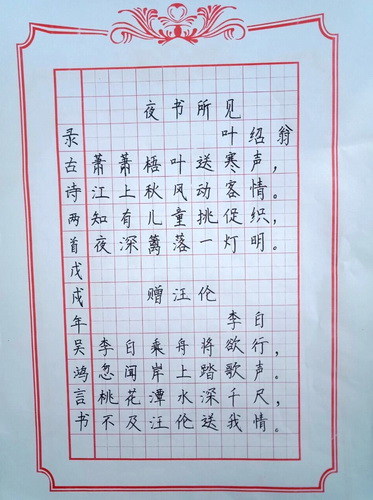 夜书所见
叶绍翁
萧萧梧叶送寒声，
江上秋风动客情。
知有儿童挑促织，
夜深篱落一灯明。
赠汪伦
李白
李白乘舟将欲行，
忽闻岸上踏歌声。
桃花潭水深千尺，
不及汪伦送我情。
录古诗两首戊戌年吴鸿言书